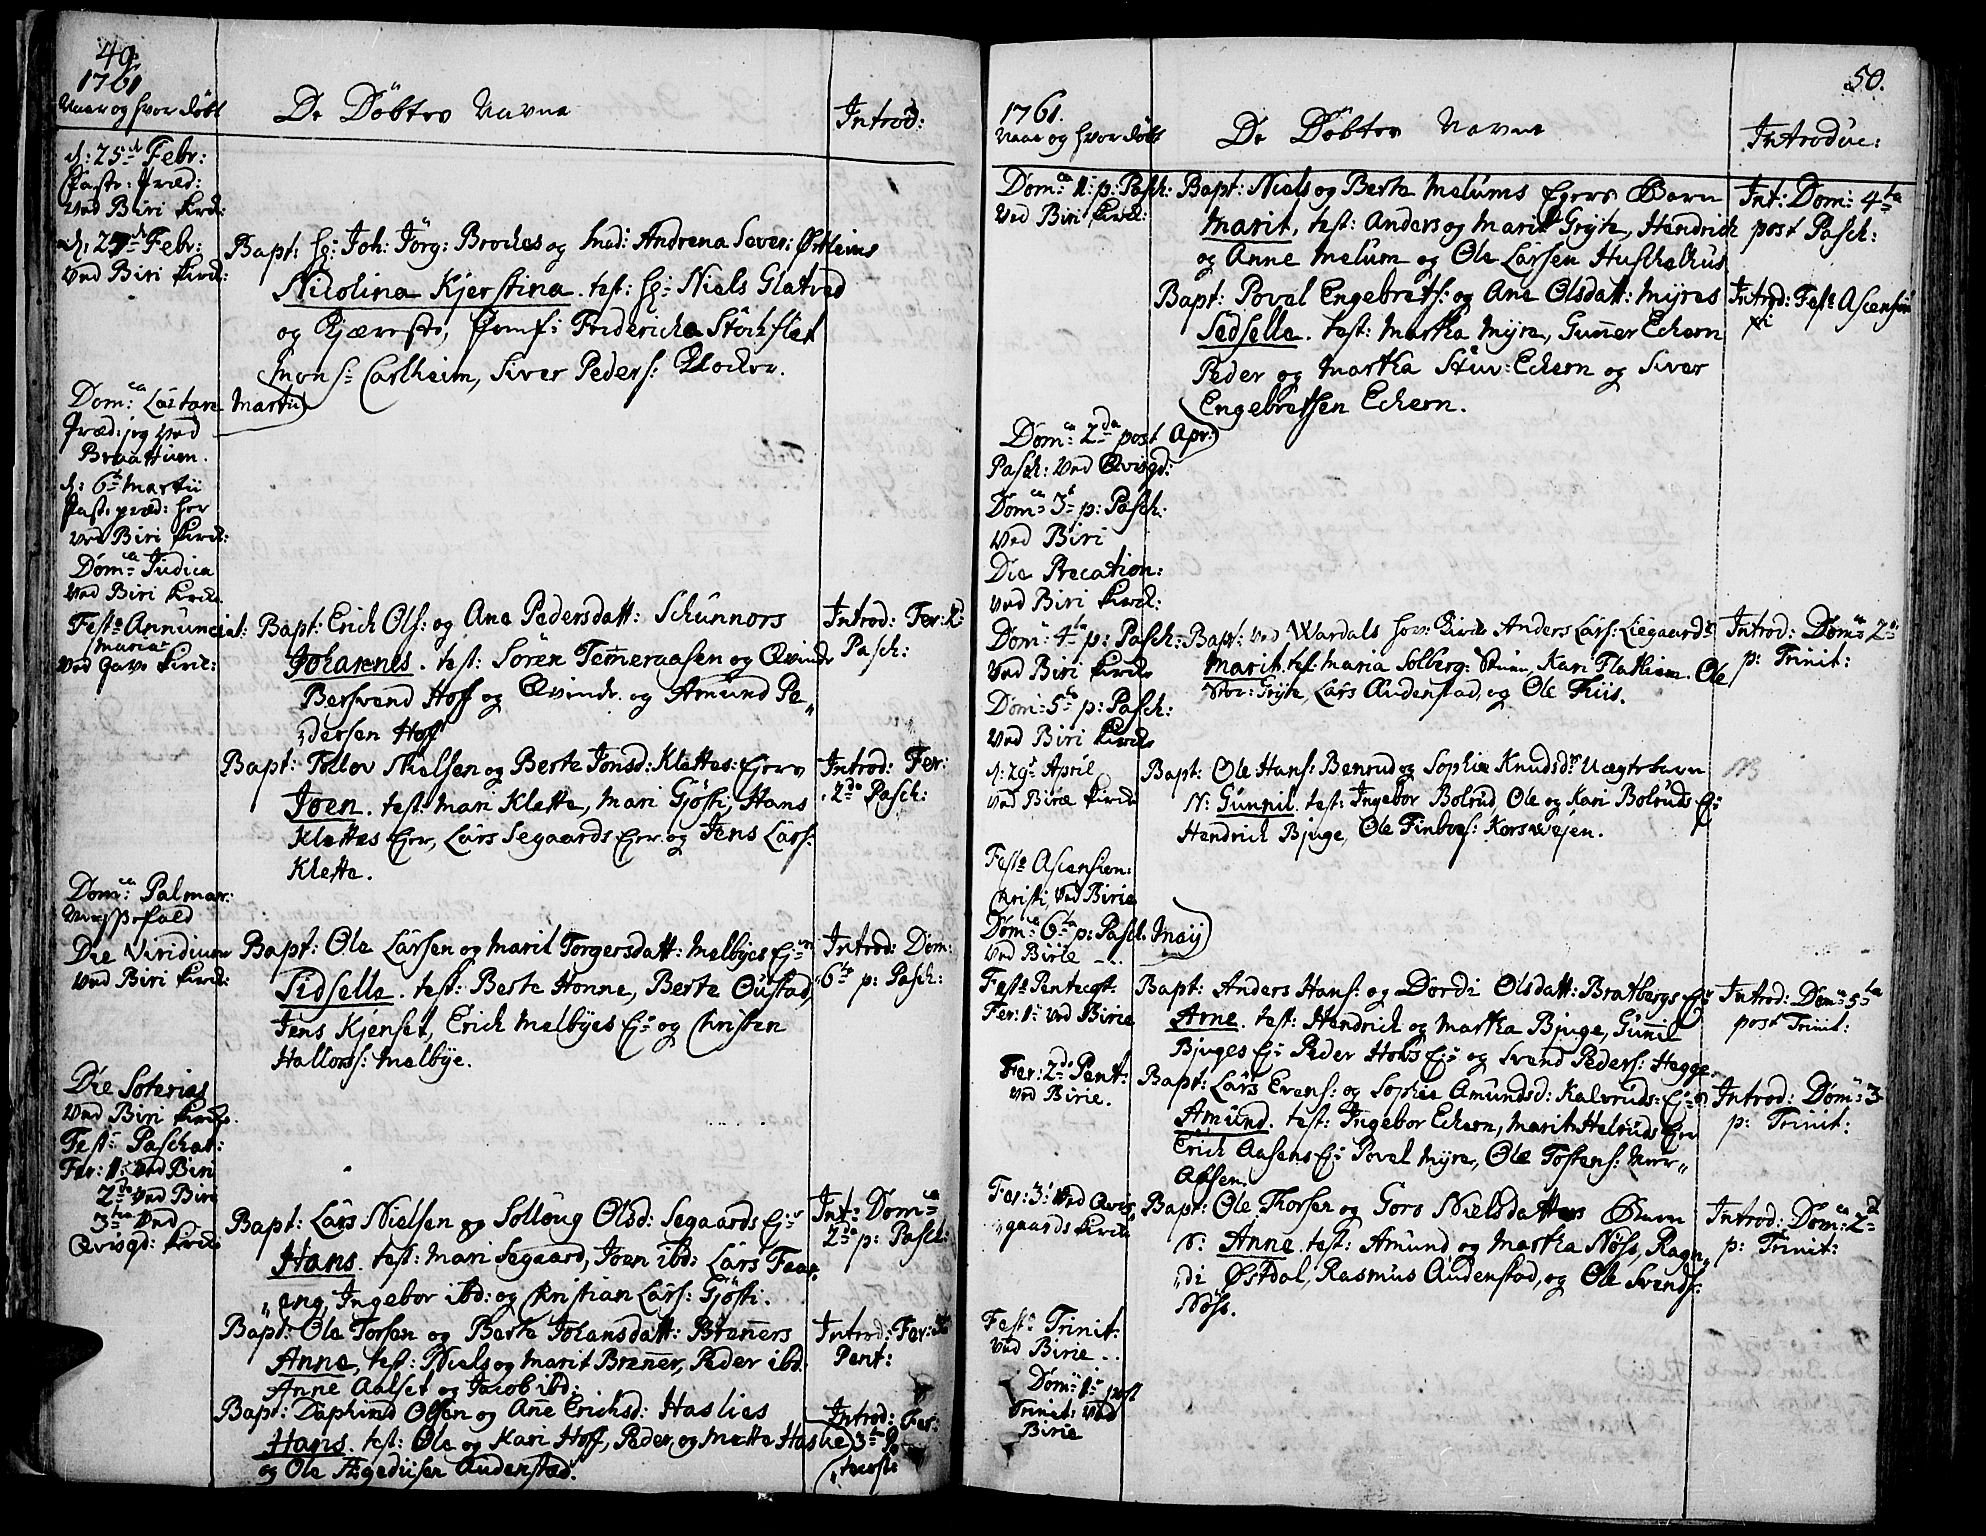 49.
1761
Naar og hvor døbt
De Döbtes Navne
Introd:
d: 25de Febr:
Past: Præd:
Ved Biri Kirck:
d: 27d Febr:
Ved Biri Kirck:
Bapt: Hr: Joh: Jörg: Broches og Mad: Andrena Sever: Örtheims
Nicolina Kjerstina. test: Hr: Niels Glatved
og Kjæreste, Jomf: Fridericha Stöchflet
Mons: Carlheim, Siver Peders: Klocker.
Domca: Lætare Martii
Præd: jeg ved
Braattuen.
d: 6te Martii
Past: præd: her
Ved Biri Kirck:
Domca Judica
Ved Biri Kircke
Festo Annunciat:
Mariæ
Ved Gave Kirck:
Bapt: Erich Ols: og Ane Pedersdatt: Schunnors
Johannes. test: Sören Temmeraasen og Qvinde
Bersvend Hoff og Qvinde og Amund Pe„
„dersen Hoff
Introd: Fer: 2d
Pasch:
Bapt: Tollov Nielsen og Berte Jonsd: Klettes: Ejere
Joen. test: Mari Klette, Mari Gjösti, Hans
Klettes Ejer, Lars Segaards Ejer og Jens Lars:
Klette.
Introd: Fer:
2da Pasch:
Domca: Palmar:
Messefald
Die Viridium
Ved Biri Kirck:
Bapt: Ole Larsen og Marit Torgersdatt: Melbyes Ej:
Sidselle. test: Berte Honne, Berte Oustad,
Jens Kjenset, Erich Melbyes Ej: og Christen
Hallors: Melbye.
Introd: Dom:
6ta p: Pasch:
Die Soterias
Ved Biri Kircke.
Fest: Paschat:
Fer: 1: ved Biri
2da ved Biri
3tia ved
Qvisgd: Kircke
Bapt: Lars Nielsen og Solloug Olsd: Segaards Ej:
Hans. test: Mari Segaard, Joen ibd: Lars Faar„
„eng, Ingebor ibd: og Christian Lars: Gjösti.
Int: Domca
2da p: Pasch:
Bapt: Ole Torsen og Berte Johansdatt: Brenners
Anne, test: Niels og Marit Brenner, Peder ibd.
Anne Aalset og Jacob ibd:
Introd: Fer: 3
Pent:
Bapt: Daphind Olsen og Ane Erichsd: Haslies
Hans. test: Ole og Kari Hoff, Peder og Mette Haslie
og Ole Ægediisen Audenstad.
Introd: Fer:
3tia Pe
„tecoste
50.
1761.
Naar og hvor døbt
De Döbtes Navne
Introduc:
Domca 1: p: Pasch:
Ved Biri Kirck:
Bapt: Niels og Berte Melums Ejers Barn
Marit, test: Anders og Marit Gryte, Hendrich
og Anne Melum og Ole Larsen Huskelhus
Int: Dom: 4ta
post Pasch:
Bapt: Poval Engebrets: og Ane Olsdatt: Myres
Sedselle. test: Martha Myre, Gunner Echern
Peder og Martha Stuv: Echern og Siver
Engebretsen Echern.
Introd: Festo Ascension
Xti
Domca 2da post Apr:
Pasch: Ved Qvisgd:
Domca 3t p: Pasch.
Ved Biri
Die Precation:
Ved Biri Kirck:
Dom: 4ta p: Pasch:
Ved Biri Kircke
Bapt: Ved Wardals hov: Kirche Anders Lars: Liegaards
Marit. test: Maria Solberg: Stuen, Kari Flatheim. Ole
Stor: Gryte, Lars Audenstad, og Ole Thiis.
Introd: Dom: 2a:
p: Trinit:
Dom: 5ta p: Pasch:
Ved Biri Kircke
d: 29d April
Ved Birie Kircke
Bapt: Ole Hans: Benrud og Sophie Knudsdr Uægte barn
N: Gunnil. test: Ingebor Bolrud, Ole og Kari Bolruds Ej:
Hendrich Bjuge, Ole Finboes: Korsvejen.
NB
Festo Ascension:
Christi, Ved Birie
Dom: 6ta p: Pasch: Maij
Ved Birie ....
Festo Pentecost.
Fer: 1: ved Birie
Bapt: Anders Hans: og Dordi Olsdatt: Bratbergs Ej:
Arne. test: Hendrich og Martha Bjuge, Gunnil
Bjuges Ej: Peder Hovs Ej: og Svend Peders: Hegge.
Introd: Dom: 5ta
post Trinit:
Fer: 2da Pent:
Ved Birie.
Bapt: Lars Evens: og Sophie Amundsd: Kalvruds: Ej:
Amund. test: Ingebor Echern, Marit Helruds Ejer
Erich Aasens Ej: Poval Myre, Ole Tostens: Nerr„
Aasen.
Introd: Dom: 3
p: Trinit:
Fer: 3: Ved Qvis„
„gaards Kircke
Bapt: Ole Thorsen og Goro Nielsdatters Barn
N: Anne. test: Amund og Martha Nöss, Ragn„
„di Östdal, Rasmus Audenstad, og Ole Svends:
Nöss.
Introd: Domca: 2d
p: Trinit:
Fest: Trinit:
Ved Birie ..
Dom: 1: post
Trinit: Ved
Birie